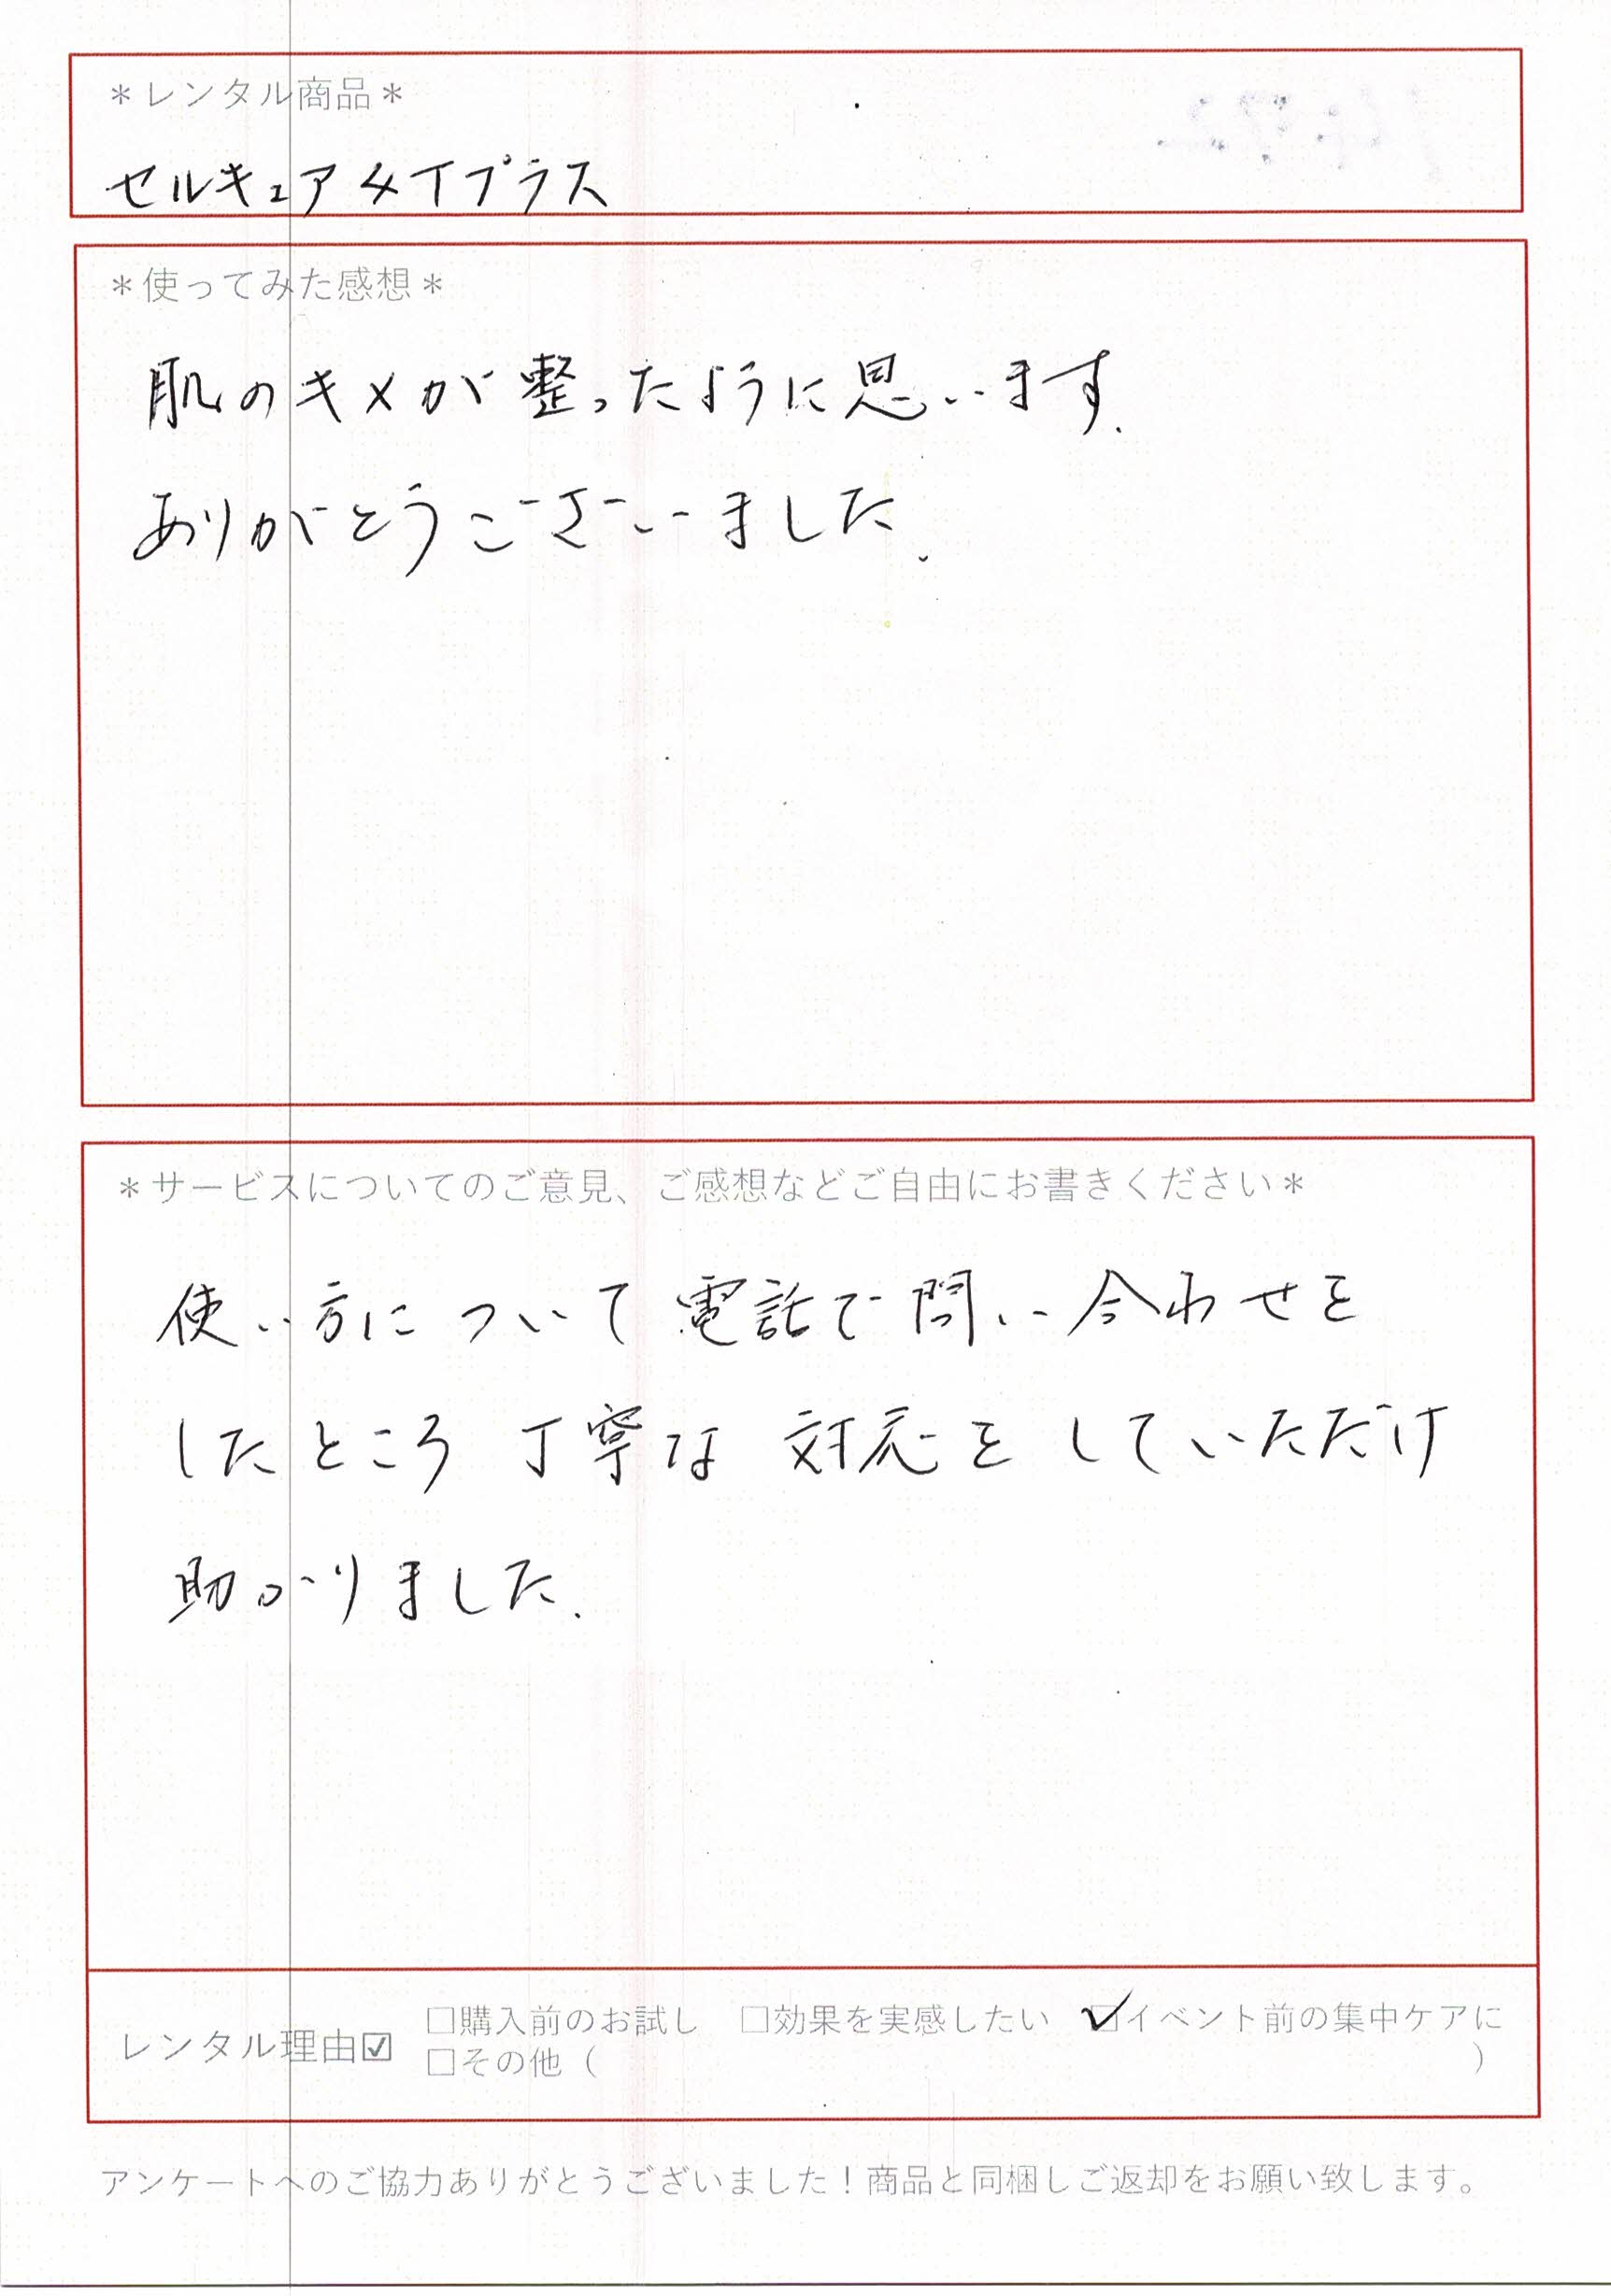 ＊レンタル商品＊
セルキュア4Tプラス
＊使ってみた感想＊
肌のキメが整ったように思います.
ありがとうございました.
＊サービスについてのご意見、ご感想などご自由にお書きください＊
使い方について電話で問い合わせを
したところ丁寧な対応をしていただけ
助かりました.
レンタル理由☑
□購入前のお試し □効果を実感したい ☑イベント前の集中ケアに
□その他（ ）
アンケートへのご協力ありがとうございました！商品と同梱しご返却をお願い致します。